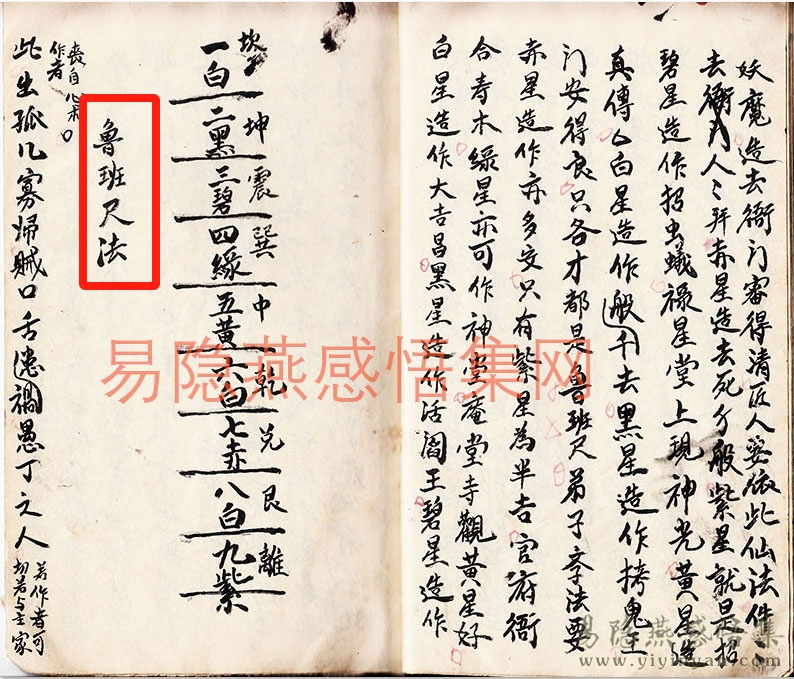 妖魔造去衙门審得清匠人要依此仙法件々
去衙门人々拜赤星造去死分般紫星就是招
碧星造作招虫蟻禄星堂上現神光黄星造
真傳厶白星造作般千去黑星造作拷鬼王
门安得良只各才都是魯班尺弟子孝法要
赤星造作亦多交只有紫星為半吉官府衙
合寿木緑星亦可作神堂庵堂寺觀黄星好
白星造作大吉昌黑星造作活阎王碧星造作
坎 坤 震 巽 中 乾 兑 艮 離
一白 二黑 三碧 四緑 五黃 六白 七赤 八白 九紫
魯班尺法
喪自
作者
此生孤几寡婦贼口舌 禍愚丁之人
若作者可
切若与主家
易隐燕感悟集网
易隐燕感悟集
www.yiyinyan.com